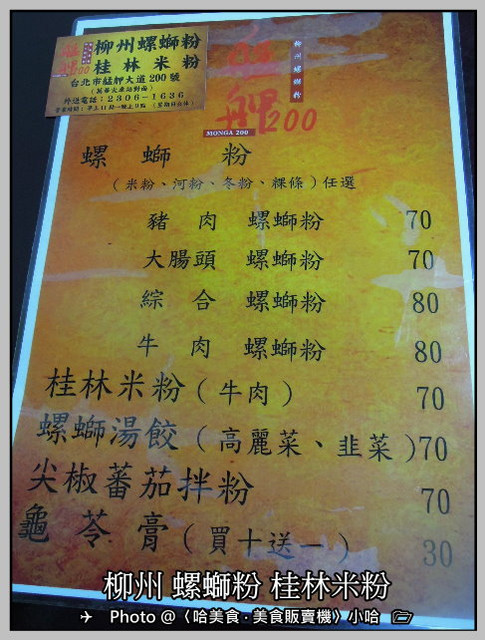 柳州螺螄粉
桂林米粉
台北市艋舺大道200號
(萬華火車站對面)
外送電話:2306-1636
艋舺200
柳州螺螄粉
MONGA 200
螺螄粉
(米粉、河粉、冬粉、粿條)任選
豬肉 螺螄粉 70
大腸頭 螺螄粉 70
綜合 螺螄粉 80
牛肉 螺螄粉 80
桂林米粉(牛肉) 70
螺螄湯餃(高麗菜、韭菜)70
尖椒蕃茄拌粉 70
龜苓膏(買十送一) 30
柳州 螺螄粉 桂林米粉
Photo @〈哈美食·美食販賣機〉小哈